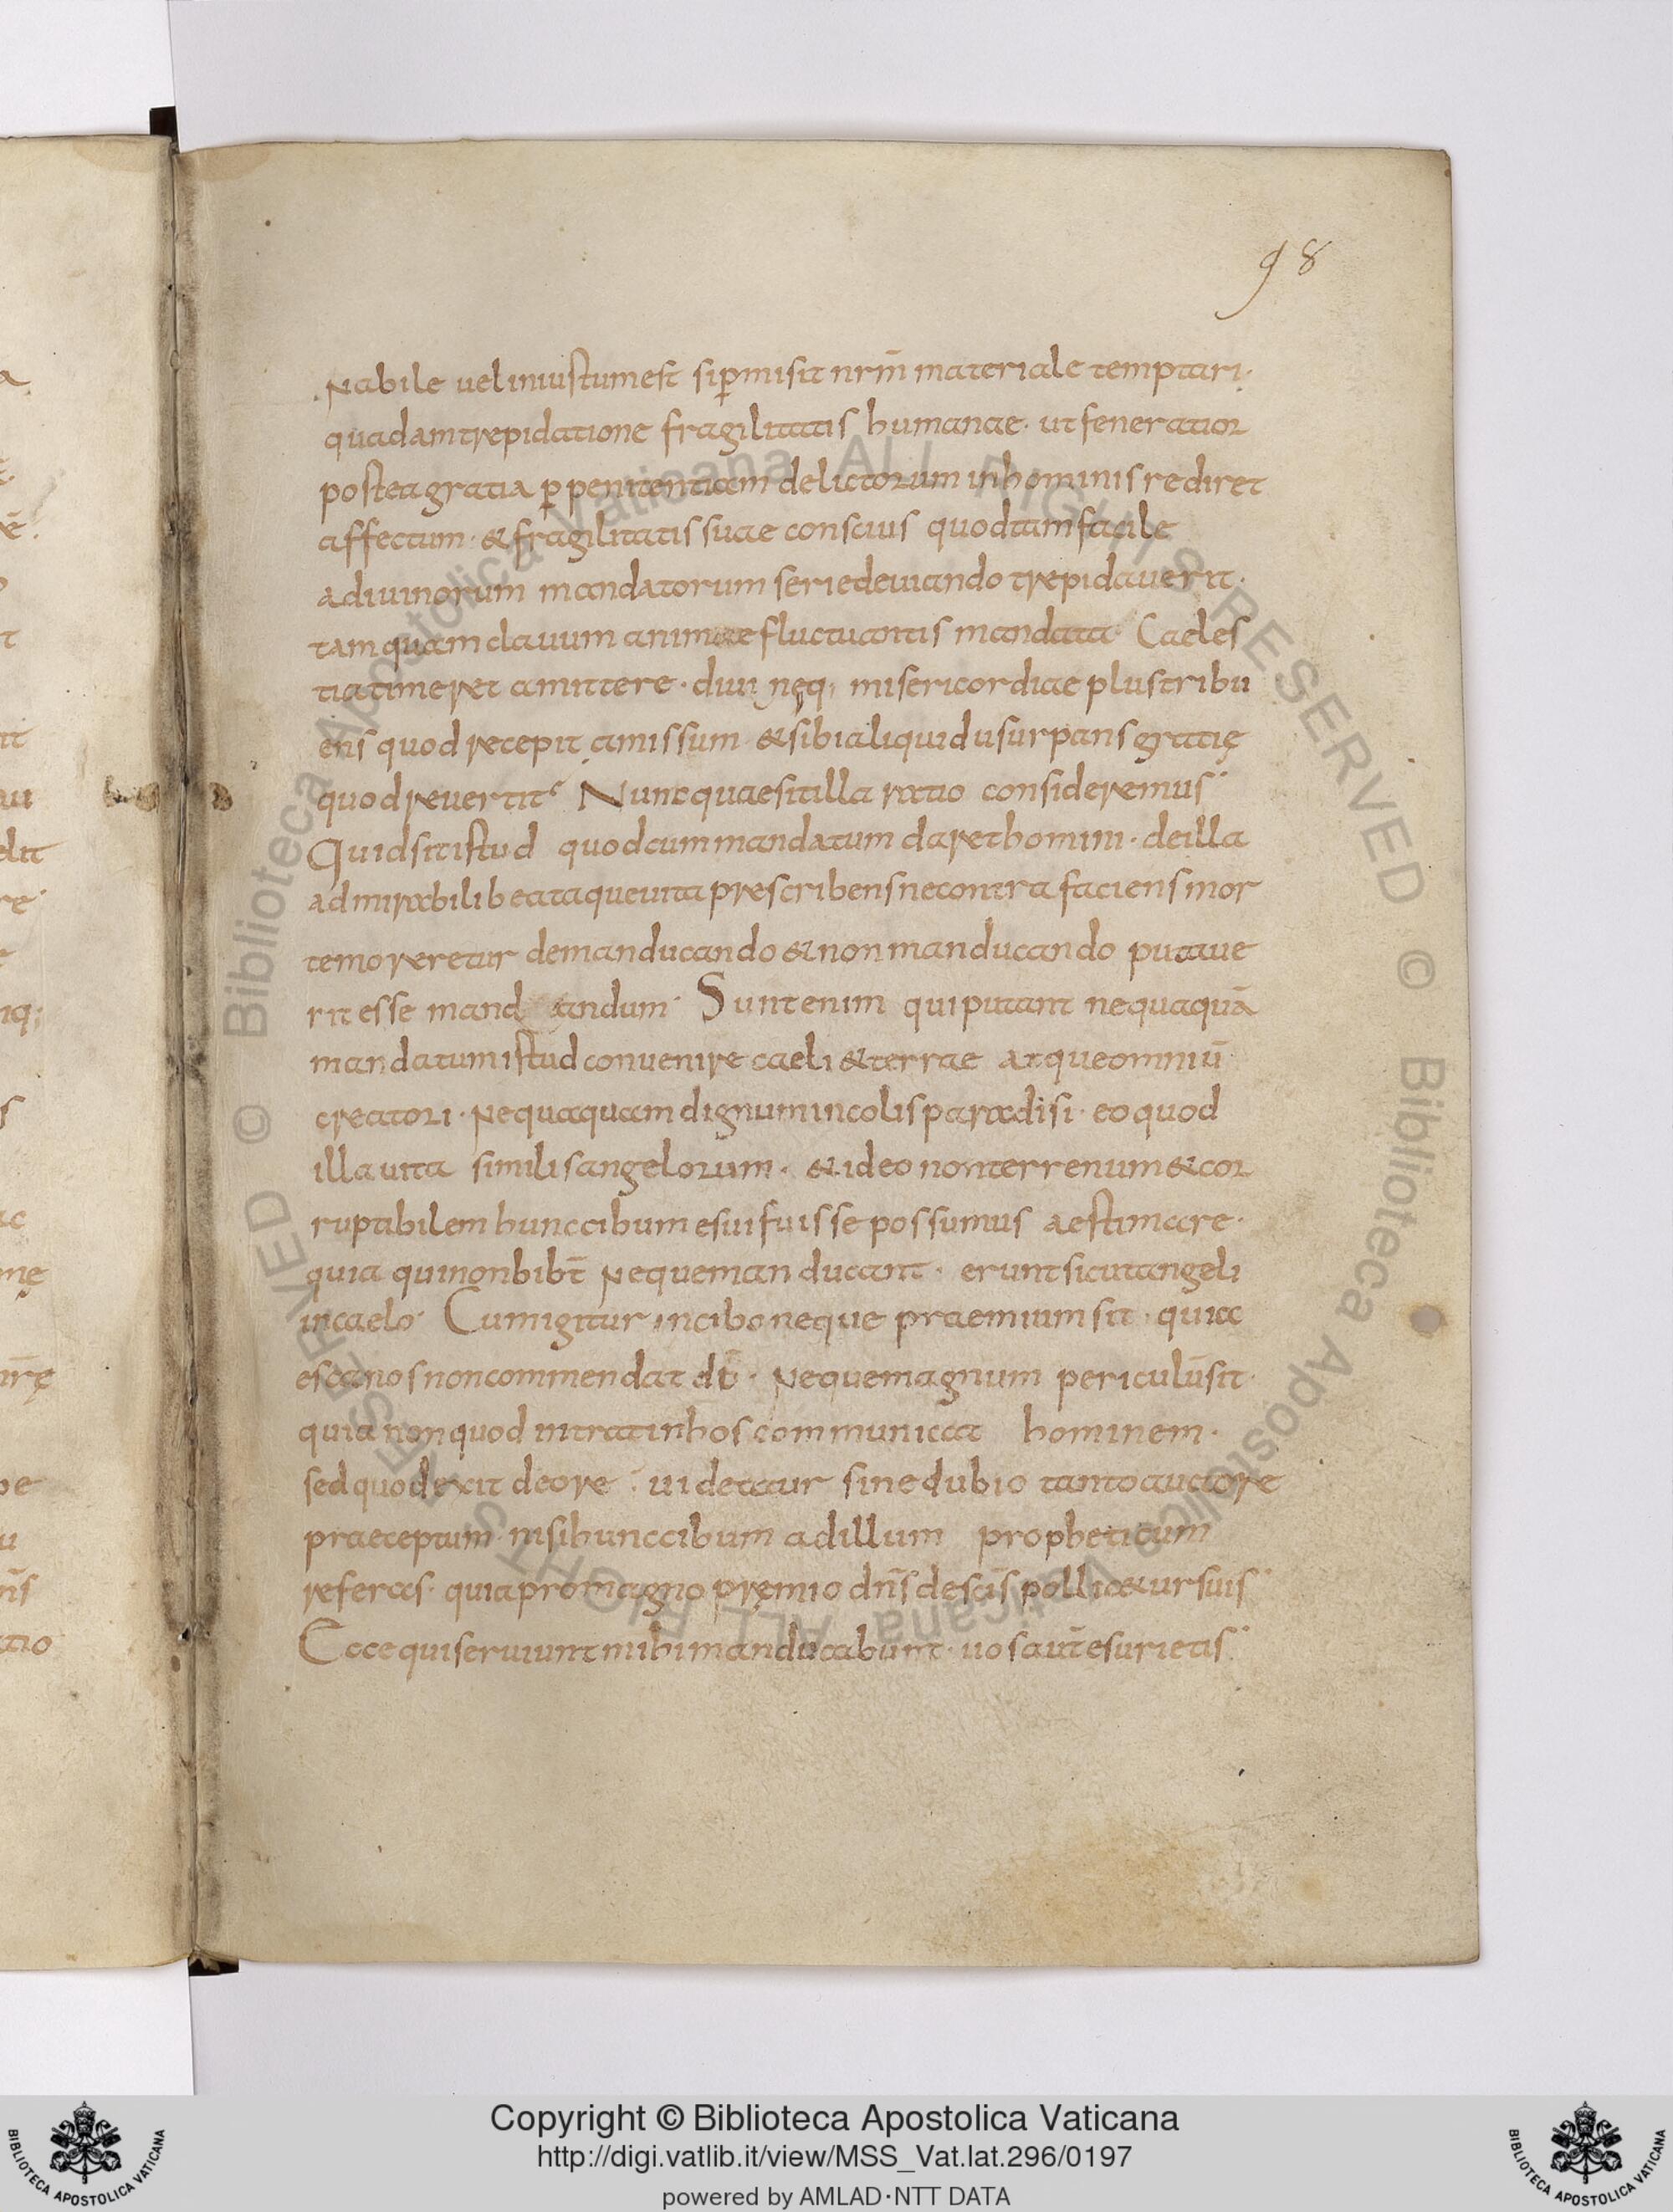 98
nabile uel iniustum est si p̱misit nrm̄ materiale temptari·
quadam trepidatione fragilitatis humanae· ut feneratior
postea gratia p̱ penitentiam delictorum in hominis rediret
affectum· & fragilitatis suae conscius quod tam facile
a diuinorum mandatorum serie deuiando trepidauerit·
tamquam clauum animae fluctuantis mandata Caeles
tia timeret amittere· diui neq; misericordiae plus tribu
ens quod recepit amissum & sibi aliquid usurpans gratię
quod reuertit᾽ Nunc quae sit illa ratio consideremus·
Quid sit istud quod cum mandatum daret homini· de illa
admirabili beataque uita prescribens ne contra faciens mor
te moreretur de manducando & non manducando putaue
rit esse mand andum· Sunt enim qui putant nequaquā
mandatum istud conuenire caeli & terrae atque omniū
creatori· nequaquam dignum incolis paradisi· eo quod
illa uita similis angelorum· & ideo non terrenum & cor
ruptabilem hunc cibum esui fuisse possumus aestimare·
quia qui non bibt̄ neque manducant· erunt sicut angeli
in caelo· Cum igitur in cibo neque praemium sit· quia
esca nos non commendat dō· neque magnum periculūsit·
quia non quod intrat in hos communicat hominem·
sed quod exit de ore· uidetur sine dubio tanto auctore
praeceptum nisi hunc cibum ad illum propheticum
referas· quia pro magno pręmio dn̄s de scīs pollicetur suis·
Ecce qui seruiunt mihi manducabunt· uos aut̄ esurietis·
Copyright © Biblioteca Apostolica Vaticana
http://digi.vatlib.it/view/MSS_Vat.lat.296/0197
powered by AMLAD·NTT DATA
BIBLIOTECA APOSTOLICA VATICANA
BIBLIOTECA APOSTOLICA VATICANA